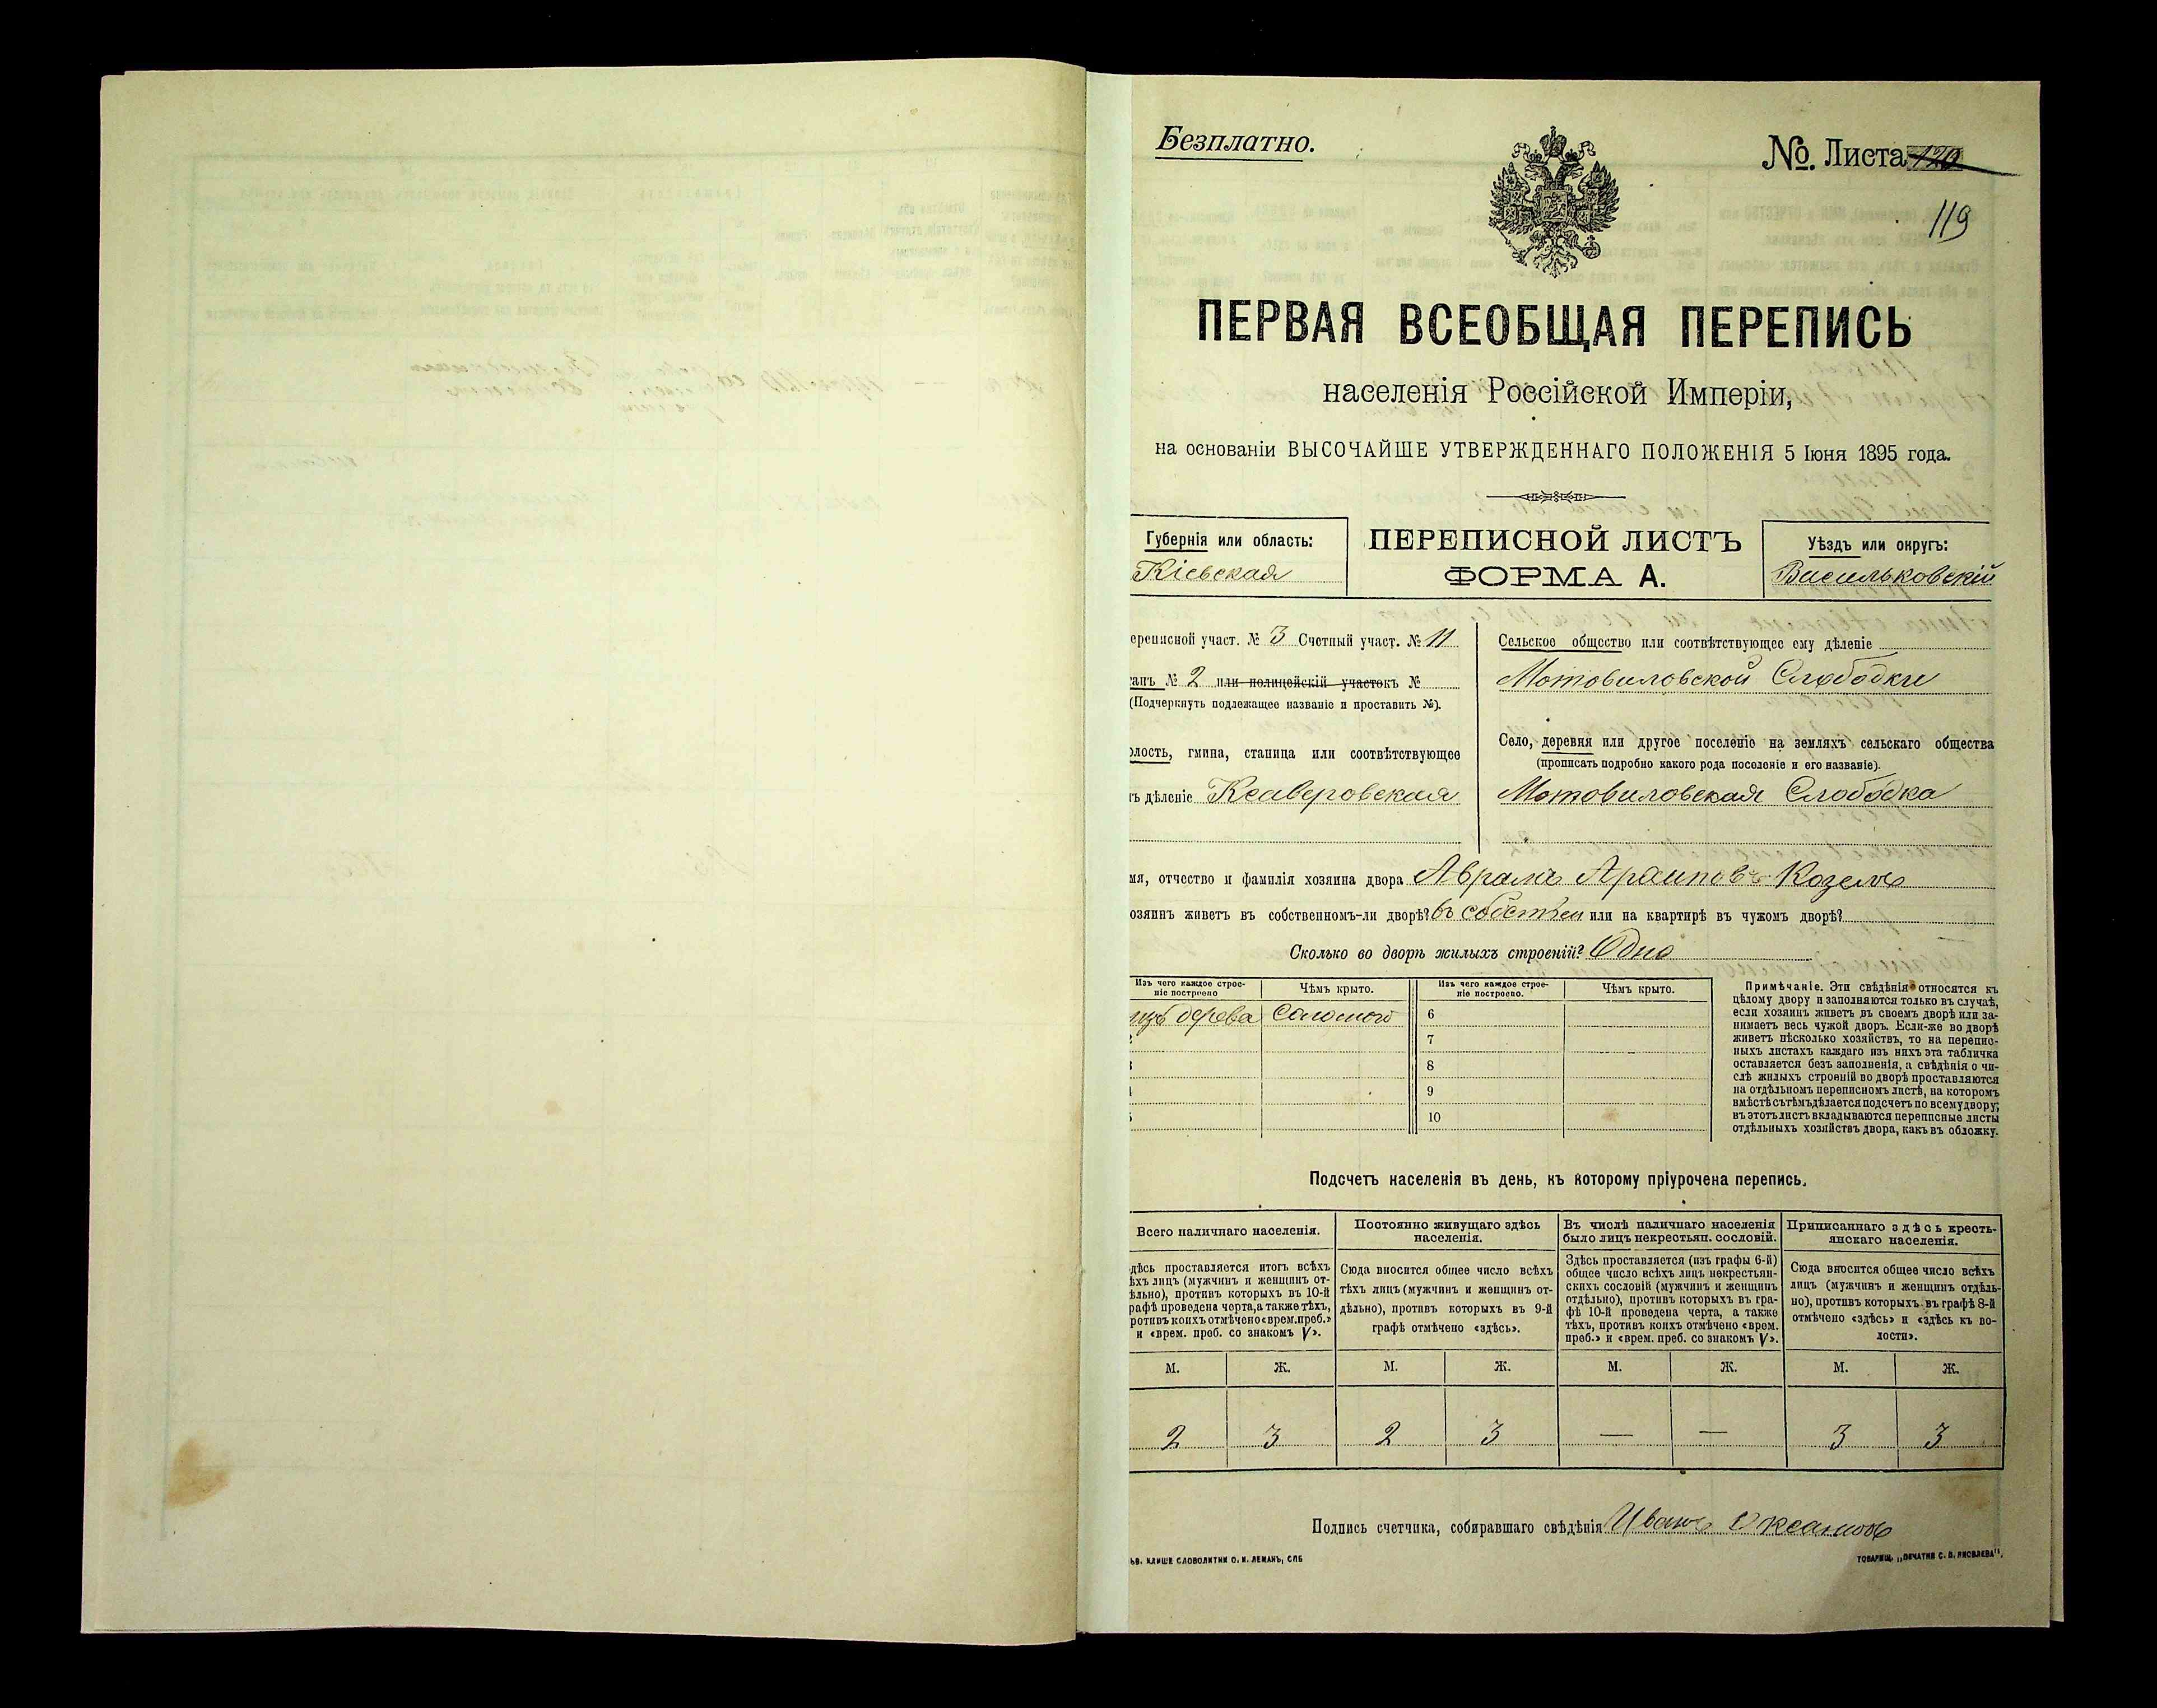 Безплатно.
№ Листа 120
119
ПЕРВАЯ ВСЕОБЩАЯ ПЕРЕПИСЬ
населенія Россійской Имперіи,
на основаніи ВЫСОЧАЙШЕ УТВЕРЖДЕННАГО ПОЛОЖЕНІЯ 5 Іюня 1895 года.
Губернія или область:
Кіевская
ПЕРЕПИСНОЙ ЛИСТЪ
ФОРМА А.
Уѣздъ или округъ:
Васильковскій
ереписной участ. № 3 Счетный участ. № 11
анъ № 2 или полицейскій участокъ №
(Подчеркнуть подлежащее названіе и проставить №).
олость, гмина, станица или соотвѣтствующее
ъ дѣленіе Ксаверовская
Сельское общество или соотвѣтствующее ему дѣленіе
Мотовиловской Слободки
Село, деревня или другое поселеніе на земляхъ сельскаго общества
(прописать подробно какого рода поселеніе и его названіе).
Мотовиловская Слободка
мя, отчество и фамилія хозяина двора Аврамъ Архиповъ Козелъ
озяинъ живетъ въ собственномъ-ли дворѣ? въ собствен или на квартирѣ въ чужомъ дворѣ?
Сколько во дворѣ жилыхъ строеній? Одно
Изъ чего каждое строе-
ніе построено
Чѣмъ крыто.
Изъ чего каждое строе-
ніе построено.
Чѣмъ крыто.
изъ дерева Соломою
6
7
8
9
10
Примѣчаніе. Эти свѣдѣнія относятся къ
цѣлому двору и заполняются только въ случаѣ,
если хозяинъ живетъ въ своемъ дворѣ или за-
нимаетъ весь чужой дворъ. Если-же во дворѣ
живетъ нѣсколько хозяйствъ, то на перепис-
ныхъ листахъ каждаго изъ нихъ эта табличка
оставляется безъ заполненія, а свѣдѣнія о чи-
слѣ жилыхъ строеній во дворѣ проставляются
на отдѣльномъ переписномъ листѣ, на которомъ
вмѣстѣ съ тѣмъ дѣлается подсчетъ по всему двору;
въ этотъ листъ вкладываются переписные листы
отдѣльныхъ хозяйствъ двора, какъ въ обложку.
Подсчетъ населенія въ день, къ которому пріурочена перепись.
Всего наличнаго населенія.
дѣсь проставляется итогъ всѣхъ
ѣхъ лицъ (мужчинъ и женщинъ от-
ѣльно), противъ которыхъ въ 10-й
рафѣ проведена черта, а также тѣхъ,
ротивъ коихъ отмѣчено «врем. преб.»
и «врем. преб. со знакомъ V».
Постоянно живущаго здѣсь
населенія.
Сюда вносится общее число всѣхъ
тѣхъ лицъ (мужчинъ и женщинъ от-
дѣльно), противъ которыхъ въ 9-й
графѣ отмѣчено «здѣсь».
Въ числѣ наличнаго населенія
было лицъ некрестьян. сословій.
Здѣсь проставляется (изъ графы 6-й)
общее число всѣхъ лицъ некрестьян-
скихъ сословій (мужчинъ и женщинъ
отдѣльно), противъ которыхъ въ гра-
фѣ 10-й проведена черта, а также
тѣхъ, противъ коихъ отмѣчено «врем.
преб.» и «врем. преб. со знакомъ V».
Приписаннаго здѣсь кресть-
янскаго населенія.
Сюда вносится общее число всѣхъ
лицъ (мужчинъ и женщинъ отдѣль-
но), противъ которыхъ въ графѣ 8-й
отмѣчено «здѣсь» и «здѣсь къ во-
лости».
М. Ж. М. Ж. М. Ж. М. Ж.
2 3 2 3 — — 3 3
Подпись счетчика, собиравшаго свѣдѣнія Иванъ
ЬВ. КЛИШЕ СЛОВОЛИТНИ О. И. ЛЕМАНЪ, СПБ
ТОВАРИЩ. „ПЕЧАТНЯ С. П. ЯКОВЛЕВА".